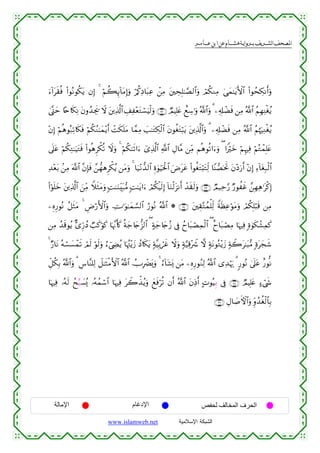 المصحف الشريف برواية هشام عن ابن عامر
وَأَنكِحُوا۟ ٱلْأَيَـٰمَىٰ مِنكُمْ وَٱلصَّـٰلِحِينَ مِنْ عِبَادِكُمْ وَإِمَآئِكُمْ ۚ إِن يَكُونُوا۟ فُقَرَآءَ
يُغْنِهِمُ ٱللَّهُ مِن فَضْلِهِۦ ۗ وَٱللَّهُ وَٰسِعٌ عَلِيمٌ وَلْيَسْتَعْفِفِ ٱلَّذِينَ لَا يَجِدُونَ نِكَاحًا حَتَّىٰ
يُغْنِيَهُمُ ٱللَّهُ مِن فَضْلِهِۦ ۗ وَٱلَّذِينَ يَبْتَغُونَ ٱلْكِتَـٰبَ مِمَّا مَلَكَتْ أَيْمَـٰنُكُمْ فَكَاتِبُوهُمْ إِنْ
عَلِمْتُمْ فِيهِمْ خَيْرًا ۖ وَءَاتُوهُم مِّن مَّالِ ٱللَّهِ ٱلَّذِىٓ ءَاتَىٰكُمْ ۚ وَلَا تُكْرِهُوا۟ فَتَيَـٰتِكُمْ عَلَى
ٱلْبِغَآءِ إِنْ أَرَدْنَ تَحَصُّنًا لِّتَبْتَغُوا۟ عَرَضَ ٱلْحَيَوٰةِ ٱلدُّنْيَا ۚ وَمَن يُكْرِههُّنَّ فَإِنَّ ٱللَّهَ مِنۢ بَعْدِ
إِكْرَٰهِهِنَّ غَفُورٌ رَّحِيمٌ وَلَقَدْ أَنزَلْنَآ إِلَيْكُمْ ءَايَـٰتٍ مُّبَيِّنَـٰتٍ وَمَثَلًا مِّنَ ٱلَّذِينَ خَلَوْا۟
مِن قَبْلِكُمْ وَمَوْعِظَةً لِّلْمُتَّقِينَ ۞ ٱللَّهُ نُورُ ٱلسَّمَـٰوَٰتِ وَٱلْأَرْضِ ۚ مَثَلُ نُورِهِۦ
كَمِشْكَوٰةٍ فِيهَا مِصْبَاحٌ ۖ ٱلْمِصْبَاحُ فِى زُجَاجَةٍ ۖ ٱلزُّجَاجَةُ كَأَنَّهَا كَوْكَبٌ دُرِّىٌّ يُوقَدُ مِن
شَجَرَةٍ مُّبَـٰرَكَةٍ زَيْتُونَةٍ لَّا شَرْقِيَّةٍ وَلَا غَرْبِيَّةٍ يَكَادُ زَيْتُهَا يُضِىٓءُ وَلَوْ لَمْ تَمْسَسْهُ نَارٌ ۚ
نُّورٌ عَلَىٰ نُورٍ ۗ يَهْدِى ٱللَّهُ لِنُورِهِۦ مَن يَشَآءُ ۚ وَيَضْرِبُ ٱللَّهُ ٱلْأَمْثَـٰلَ لِلنَّاسِ ۗ وَٱللَّهُ بِكُلِّ
شَىْءٍ عَلِيمٌ فِى بُيُوتٍ أَذِنَ ٱللَّهُ أَن تُرْفَعَ وَيُذْكَرَ فِيهَا ٱسْمُهُۥ يُسَبَّحُ لَهُۥ فِيهَا
بِٱلْغُدُوِّ وَٱلْـَٔاصَالِ
الحرف المخالف لحفص الإدغام الإمالة
الشبكة الإسلامية www.islamweb.net